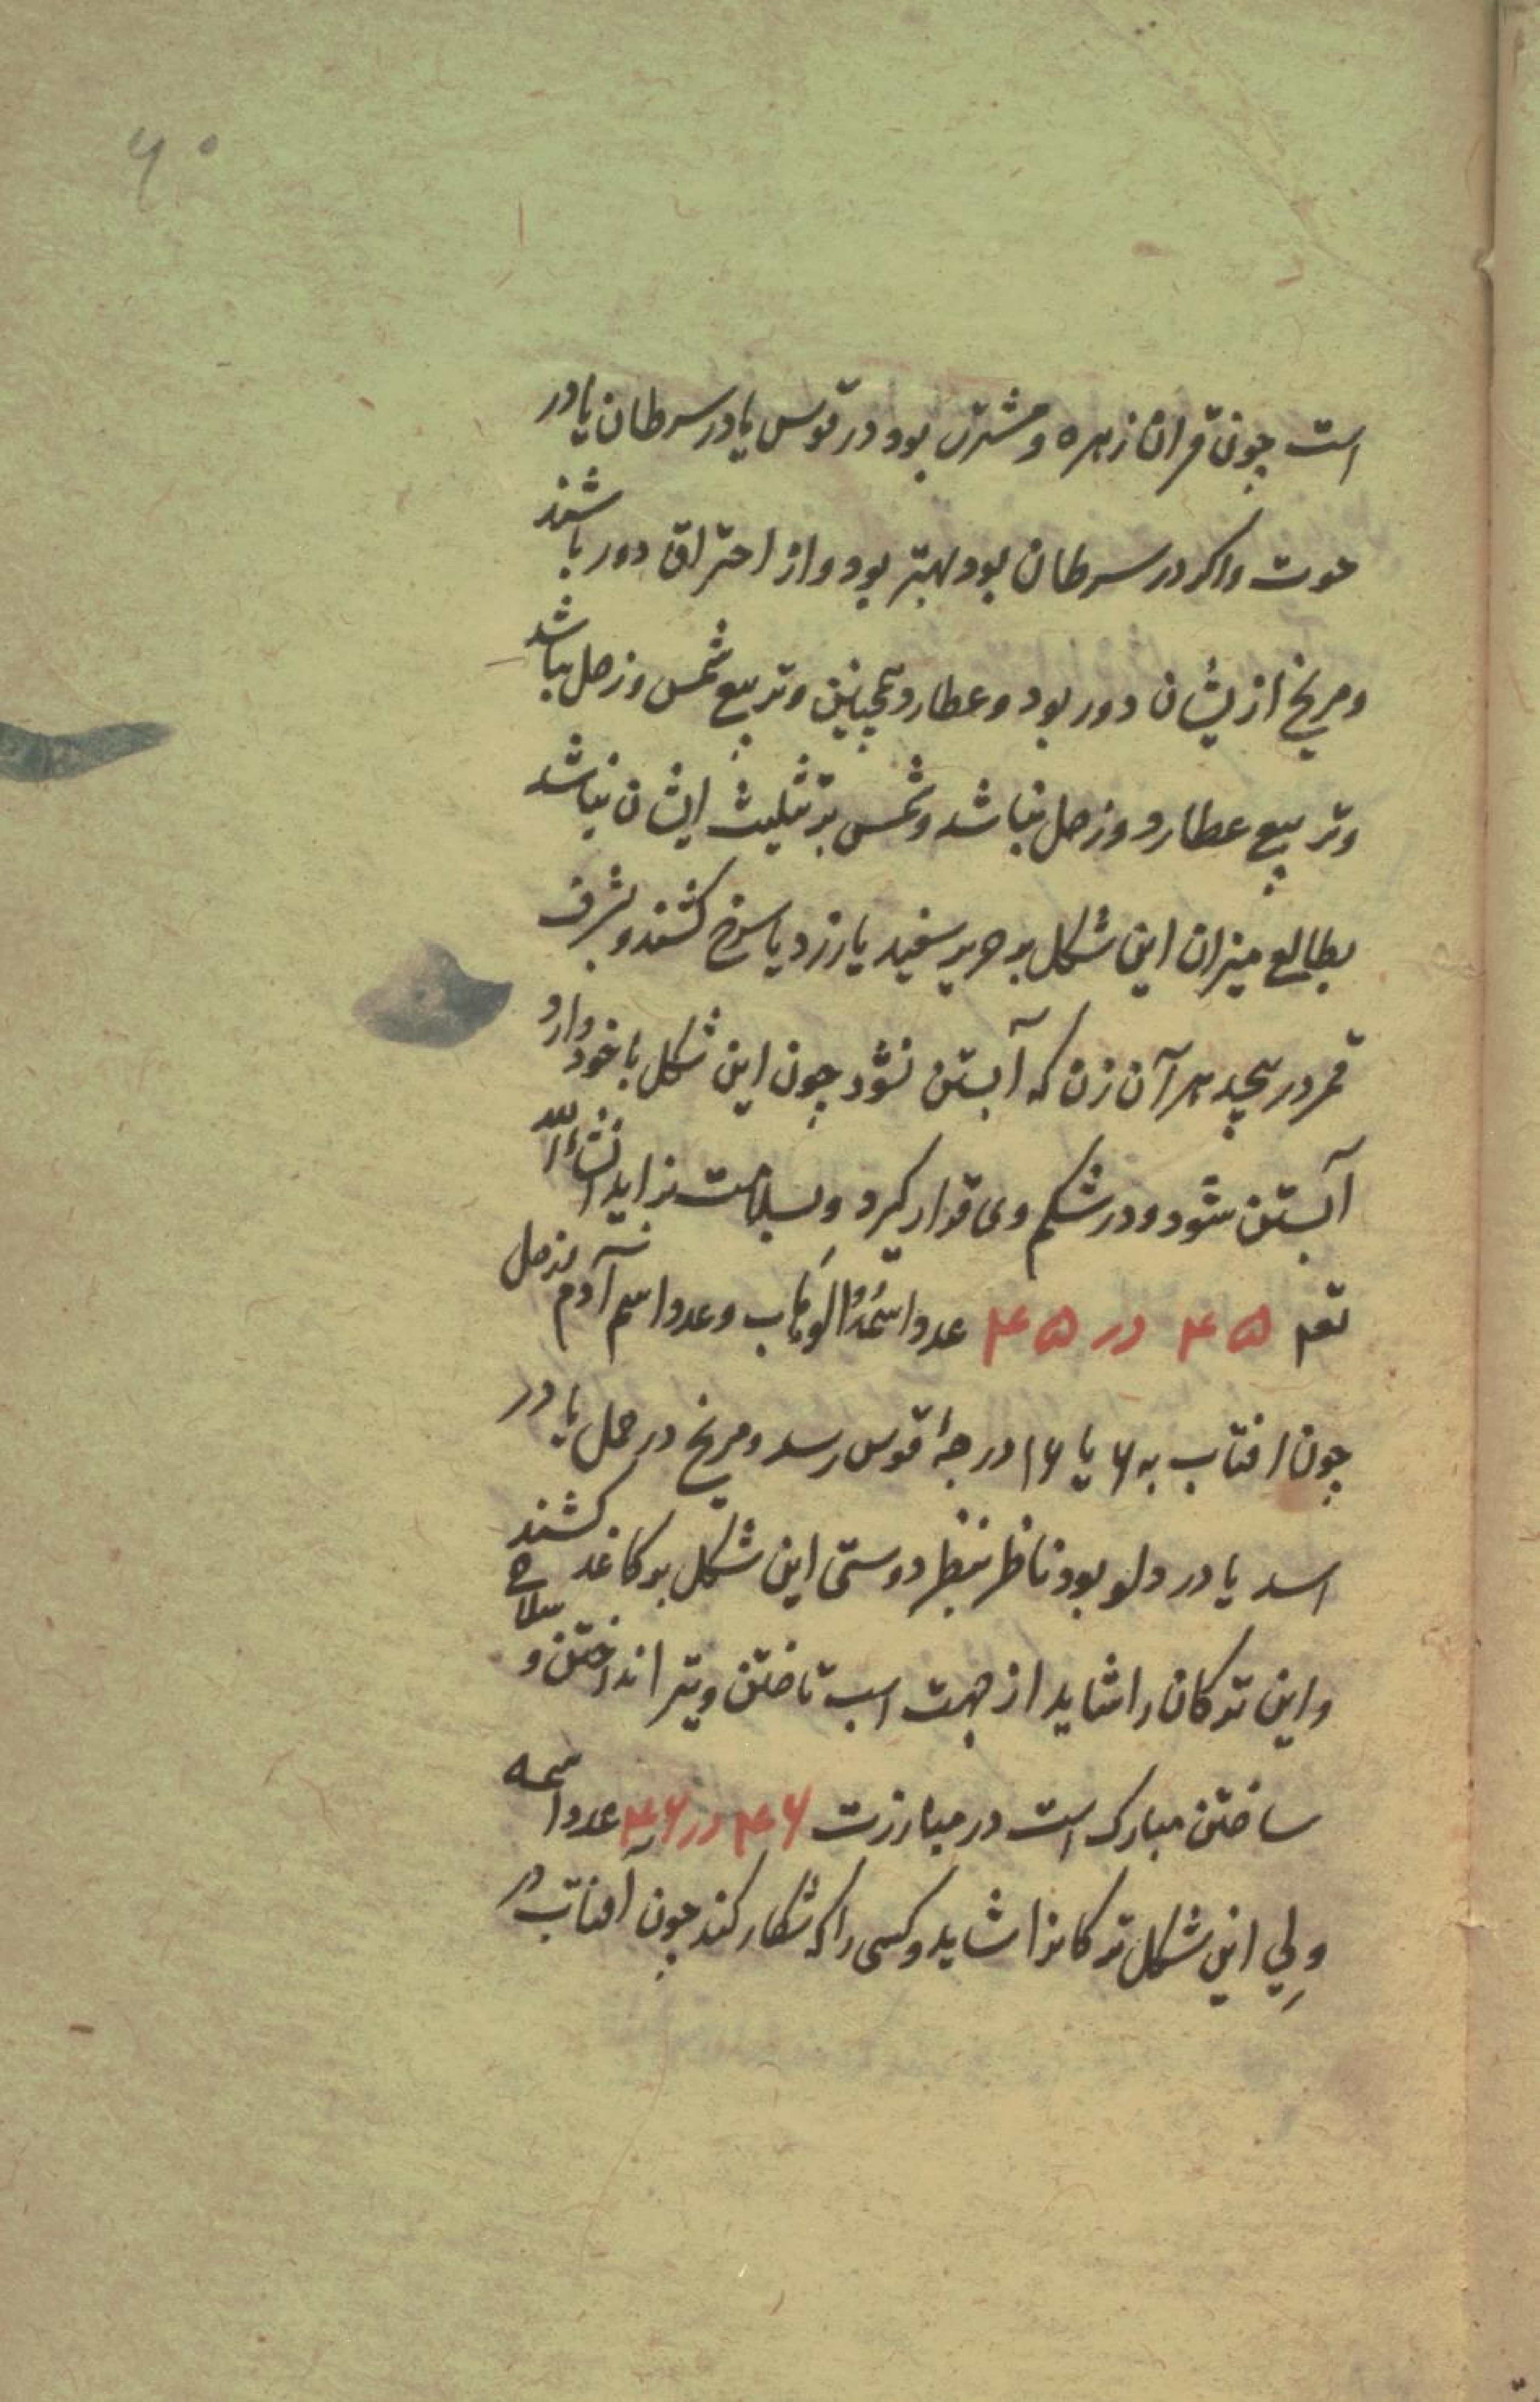 ۶۰
است چون قران زهره و مشتری بود در قوس یا در سرطان یا در
حوت واکر در سرطان بود بهتر بود و از احتراق دور باشند
و مریخ از یشان دور بود و عطارد همچنین و تربیع شمس و زحل نباشد
و تربیع عطارد و زحل نباشد و شمس بر تثلیث ایشان نباشد
بطالع میزان این شکل بر حریر سفید یا زرد یا سرخ کشند و بشرف
قمر در پیچد هر آن زن که آبستن نشود چون این شکل با خود دارد
آبستن شود و در شکم وی قرار کیرد و بسلامت بزاید انشاءالله
۴۵ در ۴۵ عدد اسمه الوهاب و عدد اسم آدم زحل
چون افتاب به ۶ یا ۱۶ درجهٔ قوس رسد و مریخ در حمل یا در
اسد یا در دلو بود ناظر بنظر دوستی این شکل بر کاغد کشند
و این ترکان را شاید از جهت اسب تاختن و تیر انداختن و سلاح
ساختن مبارک است در مبارزت ۴۶ در ۴۶ عدد اسمه
ولي این شکل ترکانرا شاید و کسی را که شکار کند چون آفتاب در